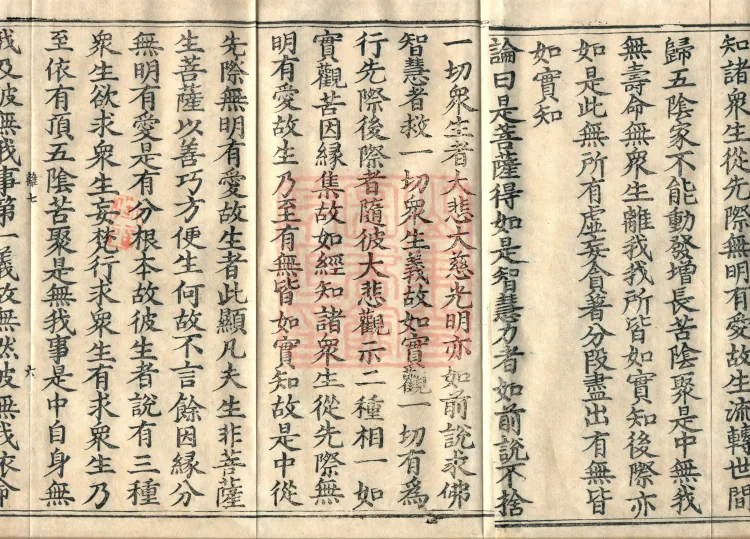 知諸衆生從先際無明有愛故生流轉世間
歸五陰家不能動發增長苦陰聚是中無我
無壽命無衆生離我我所皆如實知後際亦
如是此無所有虛妄貪著分段盡出有無皆
如實知
論曰是菩薩得如是智慧力者如前說不捨
一切衆生者大悲大慈光明亦如前說求佛
智慧者救一切衆生義故如實觀一切有爲
行先際後際者隨彼大悲觀示二種相一如
實觀苦因縁集故如經知諸衆生從先際無
明有愛故生乃至有無皆如實知故是中從
先際無明有愛故生者此顯凡夫生非菩薩
生菩薩以善巧方便生何故不言餘因縁分
無明有愛是有分根本故彼生者說有三種
衆生欲求衆生妄梵行求衆生有求衆生乃
至依有頂五陰苦聚是無我事是中自身無
六
我及彼無我事第一義故無然彼無我依命